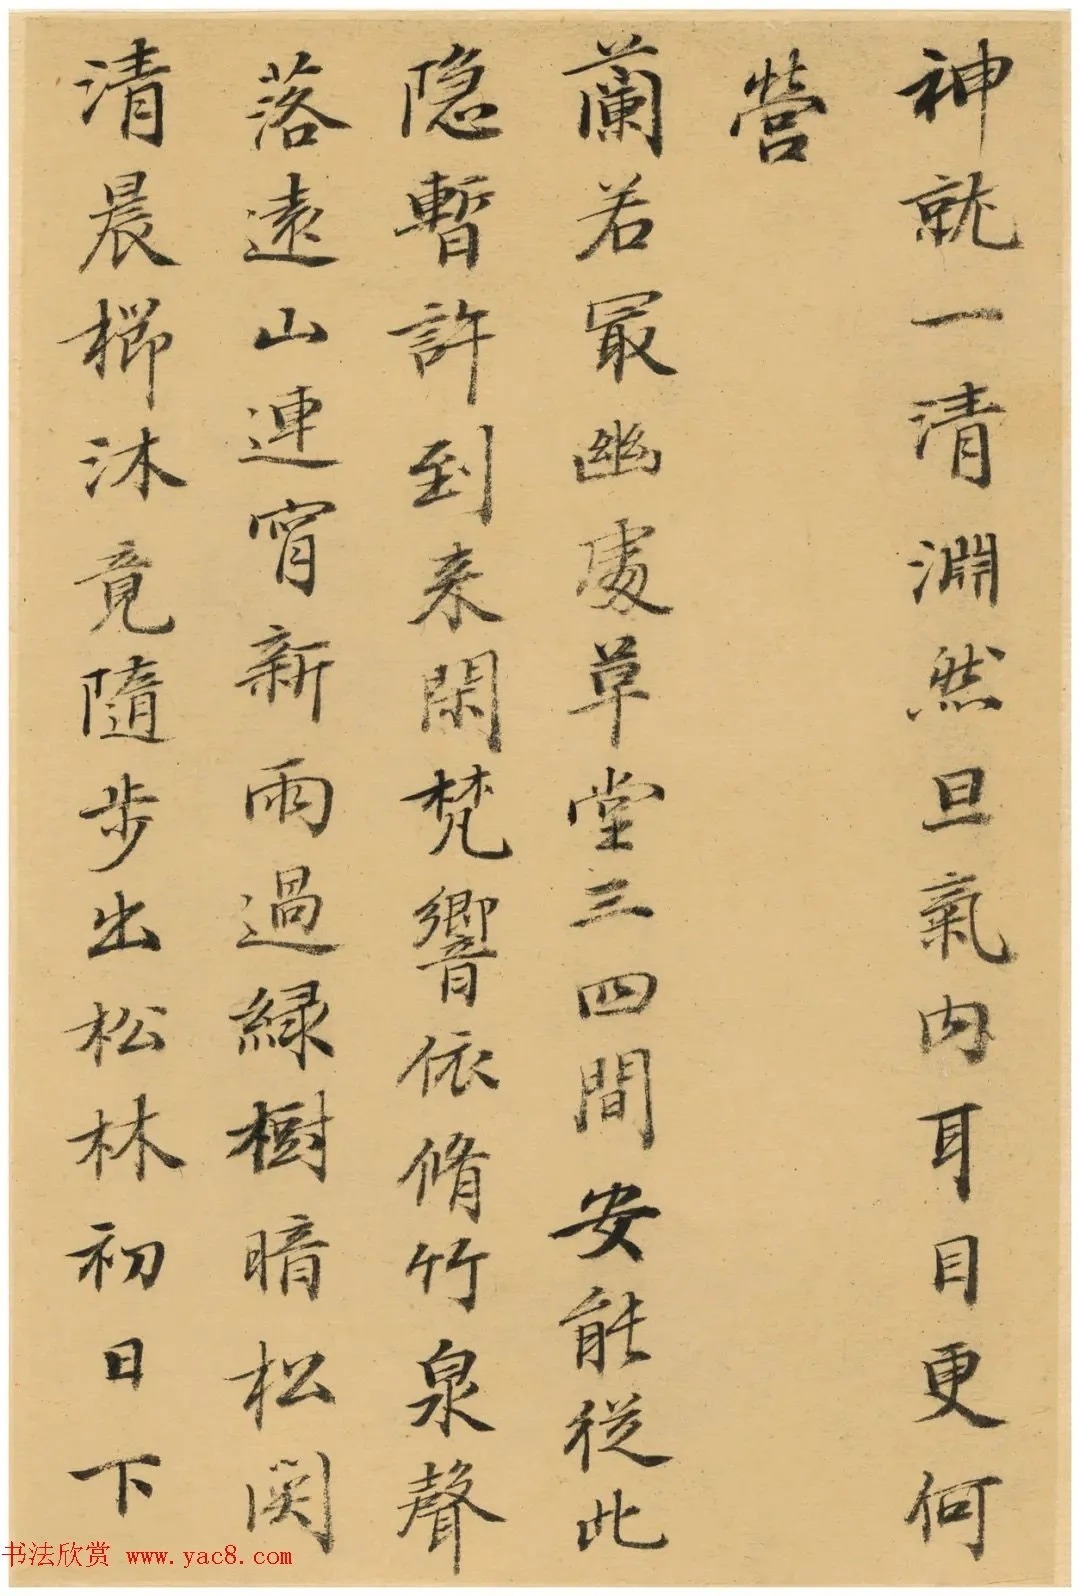 神就一清淵然旦氣內耳目更何
營
蘭若冣幽處草堂三四間安能從此
隐暫許到来閑梵響依脩竹泉聲
落遠山連宵新雨過緑樹暗松関
清晨櫛沐竟隨步出松林初日下
书法欣赏 www.yac8.com